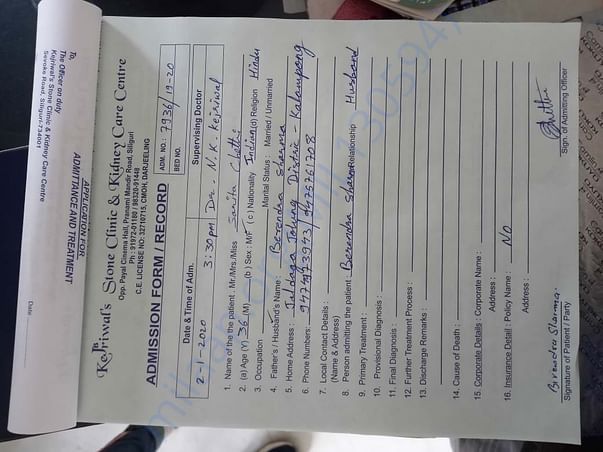 To,
The Officer on duty
Kejriwal's Stone Clinic & Kidney Care Centre
Sevoke Road, Siliguri-734001
Date
APPLICATION FOR
ADMITTANCE AND TREATMENT
Kejriwal's Stone Clinic & Kidney Care Centre
Opp. Payal Cinema Hall, Pranami Mandir Road, Siliguri
Ph : 91972-01180 / 98320-91448
C.E. LICENSE NO: 32710715, CMOH, DARJEELING
ADMISSION FORM / RECORD
ADM. NO.: 7936/19-20
BED NO.
Date & Time of Adm.
Supervising Doctor
2-1-2020 3:30pm Dr. N.K. Kejriwal
1. Name of the the patient : Mr./Mrs./Miss Sarita Chettri
2. (a) Age (Y) 36 (M) (b) Sex : M/F (c) Nationality Indian (d) Religion Hindu
3. Occupation Marital Status : Married / Unmarried
4. Father's / Husband's Name : Berendra Sharma
5. Home Address : Tolung Distric - Kalimpong
6. Phone Numbers:
7. Local Contact Details :
(Name & Address)
8. Person admitting the patient : Berendra Sharma Relationship Husband
9. Primary Treatment :
10. Provisional Diagnosis :
11. Final Diagnosis :
12. Further Treatment Process :
13. Discharge Remarks :
14. Cause of Death :
15. Corporate Details : Corporate Name :
Address :
16. Insurance Detail : Policy Name : NO
Address :
Birendra Sharma.
Signature of Patient / Party
Sign. of Admitting Officer